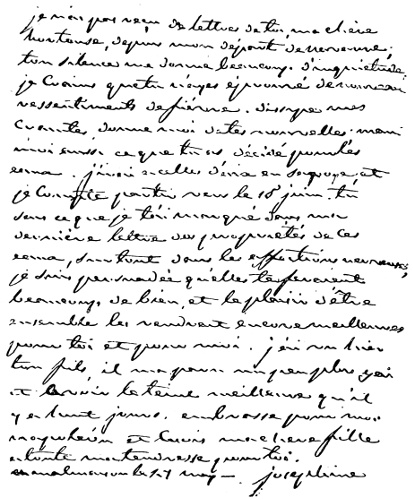 je nai pas reçu de lettres de toi, ma chère
hortense, depuis mon départ de navarre,
ton silence me donne beaucoup d'inquiétude,
je crains que tu n'ayes éprouvé de nouveau
ressentiments de fièvre. dissipe mes
craintes, donne moi de tes nouvelles. mani
moi aussi ce que tu as décidé pour les
eaux. j'irai a celles d'aix en savoye, et
je compte partir vers le 18 juin. tu
sais ce que je t'ai marqué dans ma
dernière lettre des propriétés de ces
eaux, surtout dans les affections nerveuses,
je suis persuadée qu'elles te feraient
beaucoup de bien, et le plaisir d'être
ensemble les rendrait encore meilleures
pour toi et pour moi. j'ai vu hier
ton fils, il m'a paru un peu plus gai
et avoir le teint meilleur qu'il
y a huit jours. embrasse pour moi
napoléon et louis ma chere fille
et toute ma tendresse pour toi.
a malmaison le 27 may — joséphine